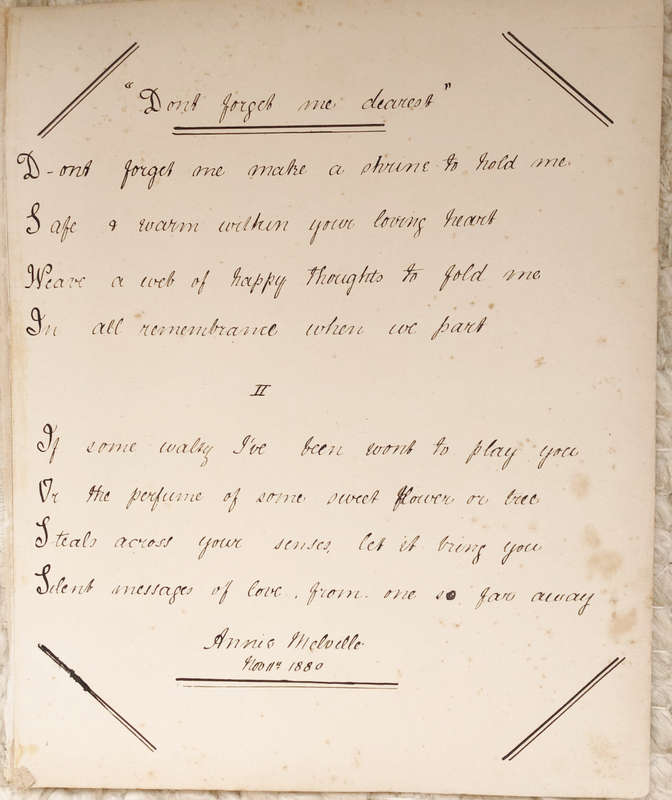 "Dont forget me dearest"
D-ont forget me make a shrine to hold me
Safe & warm within your loving heart
Weave a web of happy thoughts to fold me
In all remembrance when we part
II
If some waltz I've been wont to play you
Or the perfume of some sweet flower or tree
Steals across your senses, let it bring you
Silent messages of love. from. one so far away
Annie Melville
Nov 11th 1880